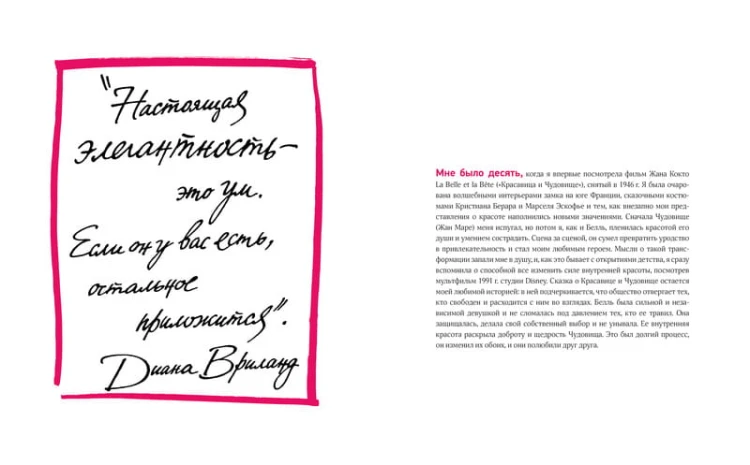 "Настоящая
элегантность –
это ум.
Если он у вас есть,
остальное
приложится".
Диана Вриланд
Мне было десять, когда я впервые посмотрела фильм Жана Кокто
La Belle et la Bête («Красавица и Чудовище»), снятый в 1946 г. Я была очаро-
вана волшебными интерьерами замка на юге Франции, сказочными костю-
мами Кристиана Берара и Марселя Эскофье и тем, как внезапно мои пред-
ставления о красоте наполнились новыми значениями. Сначала Чудовище
(Жан Маре) меня испугал, но потом я, как и Белль, пленилась красотой его
души и умением сострадать. Сцена за сценой, он сумел превратить уродство
в привлекательность и стал моим любимым героем. Мысли о такой транс-
формации запали мне в душу, и, как это бывает с открытиями детства, я сразу
вспомнила о способной все изменить силе внутренней красоты, посмотрев
мультфильм 1991 г. студии Disney. Сказка о Красавице и Чудовище остается
моей любимой историей: в ней подчеркивается, что общество отвергает тех,
кто свободен и расходится с ним во взглядах. Белль была сильной и неза-
висимой девушкой и не сломалась под давлением тех, кто ее травил. Она
защищалась, делала свой собственный выбор и не унывала. Ее внутренняя
красота раскрыла доброту и щедрость Чудовища. Это был долгий процесс,
он изменил их обоих, и они полюбили друг друга.